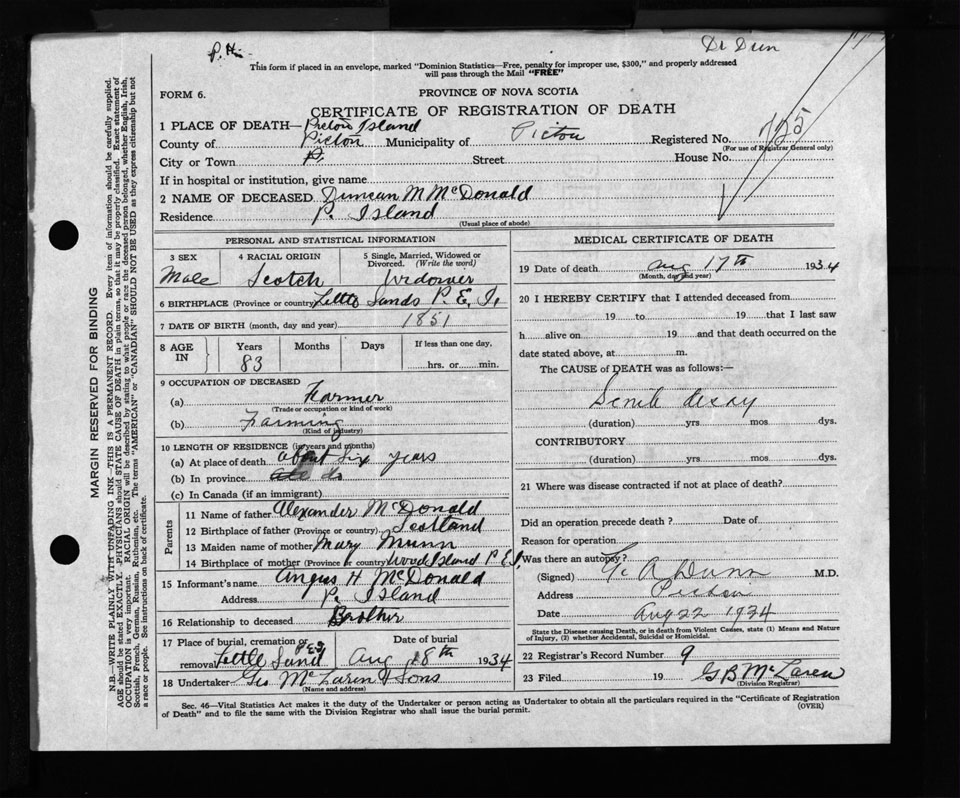 P. H.
Dr Dun
This form if placed in an envelope, marked "Dominion Statistics—Free, penalty for improper use, $300," and properly addressed
will pass through the Mail "FREE"
FORM 6.
PROVINCE OF NOVA SCOTIA
CERTIFICATE OF REGISTRATION OF DEATH
1 PLACE OF DEATH—Pictou Island
County of Pictou Municipality of Pictou Registered No. 725
(For use of Registrar General only)
City or Town Street House No.
If in hospital or institution, give name
2 NAME OF DECEASED Duncan M McDonald
Residence P. Island
(Usual place of abode)
PERSONAL AND STATISTICAL INFORMATION
3 SEX Male
4 RACIAL ORIGIN Scotch
5 Single, Married, Widowed or Divorced. (Write the word) Widower
6 BIRTHPLACE (Province or country) Little Sands P. E. I.
7 DATE OF BIRTH (month, day and year) 1851
8 AGE IN Years 83 Months Days If less than one day, hrs. or min.
9 OCCUPATION OF DECEASED
(a) Farmer
(Trade or occupation or kind of work)
(b) Farming
(Kind of industry)
10 LENGTH OF RESIDENCE (in years and months)
(a) At place of death about six years
(b) In province do
(c) In Canada (if an immigrant)
Parents
11 Name of father Alexander McDonald
12 Birthplace of father (Province or country) Scotland
13 Maiden name of mother Mary Munn
14 Birthplace of mother (Province or country) Wood Island P E I,
15 Informant's name Angus H McDonald
Address P. Island
16 Relationship to deceased Brother
17 Place of burial, cremation or removal Little Sand P E I
Date of burial Aug 18th 1934
18 Undertaker Geo McLaren & Sons
(Name and address)
MEDICAL CERTIFICATE OF DEATH
19 Date of death Aug 17th 1934
(Month, day and year)
20 I HEREBY CERTIFY that I attended deceased from
19 to 19 that I last saw
h alive on 19 and that death occurred on the
date stated above, at m.
The CAUSE of DEATH was as follows:—
Senile decay
(duration) yrs mos dys.
CONTRIBUTORY
(duration) yrs mos dys.
21 Where was disease contracted if not at place of death?
Did an operation precede death ? Date of
Reason for operation
Was there an autopsy ?
(Signed) A Dunn M.D.
Address Pictou
Date Aug 22 1934
State the Disease causing Death, or in death from Violent Causes, state (1) Means and Nature
of Injury, (2) whether Accidental, Suicidal or Homicidal.
22 Registrar's Record Number 9
23 Filed 19 G B McLaren
(Division Registrar)
Sec. 46—Vital Statistics Act makes it the duty of the Undertaker or person acting as Undertaker to obtain all the particulars required in the "Certificate of Registration
of Death" and to file the same with the Division Registrar who shall issue the burial permit.
(OVER)
MARGIN RESERVED FOR BINDING
N.B.—WRITE PLAINLY WITH UNFADING INK—THIS IS A PERMANENT RECORD. Every item of information should be carefully supplied.
AGE should be stated EXACTLY. PHYSICIANS should STATE CAUSE OF DEATH in plain terms, so that it may be properly classified. Exact statement of
OCCUPATION is very important. RACIAL ORIGIN will be described by stating to what people or race the deceased person belonged, whether English, Irish,
Scottish, French, German, Russian, Ruthenian, etc. The terms "AMERICAN" or "CANADIAN" SHOULD NOT BE USED as they express citizenship but not
a race or people. See instructions on back of certificate.